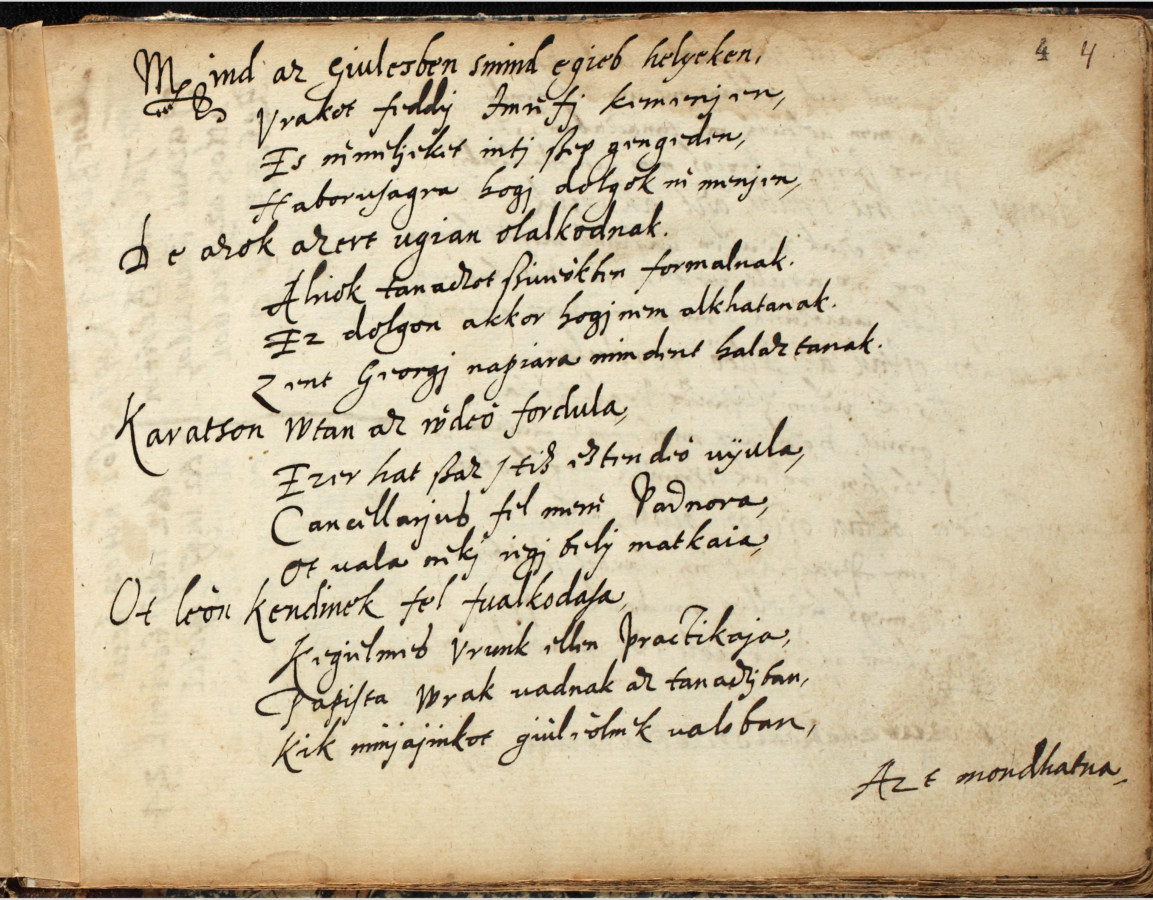 4 4
Mind az Giulesben smind egieb helyeken,
Vrakot feddÿ Imrefj kemenjen,
Es nemeljeket intj ßep gengeden,
Haborusagra hogj dolgok ne menjen,
De azok azert ugian olalkodnak.
Alnok tanaczot ßiueökben formalnak.
Ez dolgon akkor hogj nem alkhatanak.
Zent Georgj napiara mindent halaztanak.
Karatson Wtan az ideö fordula,
Ezer hat ßaz s tiz eztendeö uÿula,
Cancellarjus fel mene Radnora,
Ot vala nekj iegj belj matkaia,
Ot leön Kendinek fel fualkodasa,
Kegielmes Vrunk ellen practikaja,
Papista Wrak vadnak az tanaczban,
Kik mijajinkot giüleölnek valoban,
Azt mondhatna